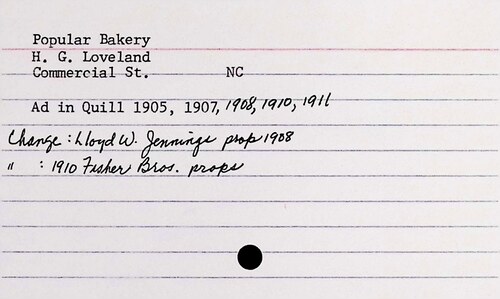 Popular Bakery
H. G. Loveland
Commercial St. NC
Ad in Quill 1905, 1907, 1908, 1910, 1911
Change : Lloyd W. Jennings prop 1908
" : 1910 Fisher Bros. props